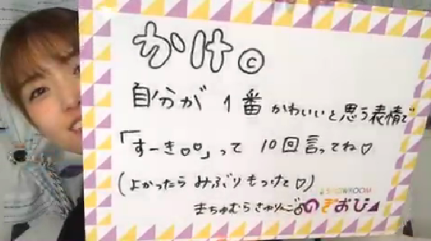 かけ©
自分が 1番 かわいいと思う表情で
「すーき♡♡」って 10回言ってね♡
(よかったら みぶりもつけて♡)
まちゅむらさゆりんご
のぎおび⊿